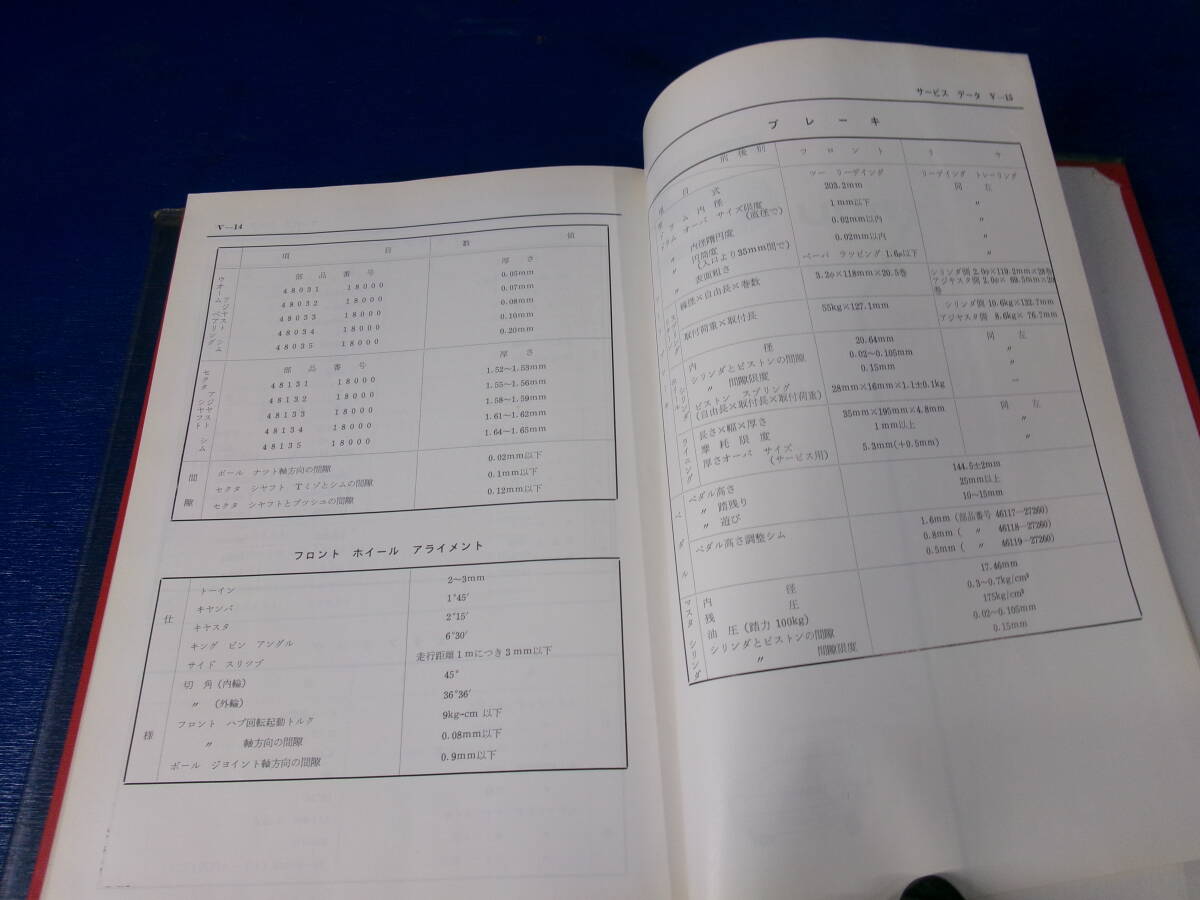 V—14
項 目 数 値
ウオーム ベアリング アジヤスト シム
部 品 番 号 厚 さ
48031 18000 0.05mm
48032 18000 0.07mm
48033 18000 0.08mm
48034 18000 0.10mm
48035 18000 0.20mm
セクタ シヤフト アジヤスト シム
部 品 番 号 厚 さ
48131 18000 1.52〜1.53mm
48132 18000 1.55〜1.56mm
48133 18000 1.58〜1.59mm
48134 18000 1.61〜1.62mm
48135 18000 1.64〜1.65mm
間 隙
ボール ナツト軸方向の間隙 0.02mm以下
セクタ シヤフト Tミゾとシムの間隙 0.1mm以下
セクタ シヤフトとブツシユの間隙 0.12mm以下
フロント ホイール アライメント
仕 様
トーイン 2〜3mm
キヤンバ 1°45′
キヤスタ 2°15′
キング ピン アングル 6°30′
サイド スリツプ 走行距離1mにつき3mm以下
切 角(内輪) 45°
〃 (外輪) 36°36′
フロント ハブ回転起動トルク 9kg-cm以下
〃 軸方向の間隙 0.08mm以下
ボール ジョイント軸方向の間隙 0.9mm以下
サービス データ V—15
ブ レ ー キ
項 目 前後別 フ ロ ン ト リ ヤ
形 式 ツー リーデイング リーデイング トレーリング
ド ラ ム 内 径 203.2mm 同 左
ドラム オーバ サイズ限度(直径で) 1mm以下 〃
〃 内径楕円度 0.02mm以内 〃
〃 円筒度(入口より35mm間で) 0.02mm以内 〃
〃 表面粗さ ペーパ ラツピング 1.6μ以下 〃
線径×自由長×巻数 3.2φ×118mm×20.5巻 シリンダ側 2.0φ×119.2mm×28巻
アジヤスタ側 2.0φ× 69.5mm×
巻
取付荷重×取付長 55kg×127.1mm シリンダ側 10.6kg×132.7mm
アジヤスタ側 8.6kg× 76.7mm
内 径 20.64mm 同 左
シリンダとピストンの間隙 0.02〜0.105mm 〃
〃 間隙限度 0.15mm 〃
ピストン スプリング(自由長×取付長×取付荷重) 28mm×16mm×1.1±0.1kg —
ライニング
長さ×幅×厚さ 35mm×195mm×4.8mm 同 左
摩 耗 限 度 1mm以上 〃
厚さオーバ サイズ(サービス用) 5.3mm(+0.5mm) 〃
ペ ダ ル
ペダル高さ 144.5±2mm
〃 踏残り 25mm以上
〃 遊び 10〜15mm
ペダル高さ調整シム 1.6mm(部品番号 46117—27260)
0.8mm( 〃 46118—27260)
0.5mm( 〃 46119—27260)
マスタ シリンダ
内 径 17.46mm
残 圧 0.3〜0.7kg/cm²
油 圧(踏力 100kg) 175kg/cm²
シリンダとピストンの間隙 0.02〜0.105mm
〃 間隙限度 0.15mm